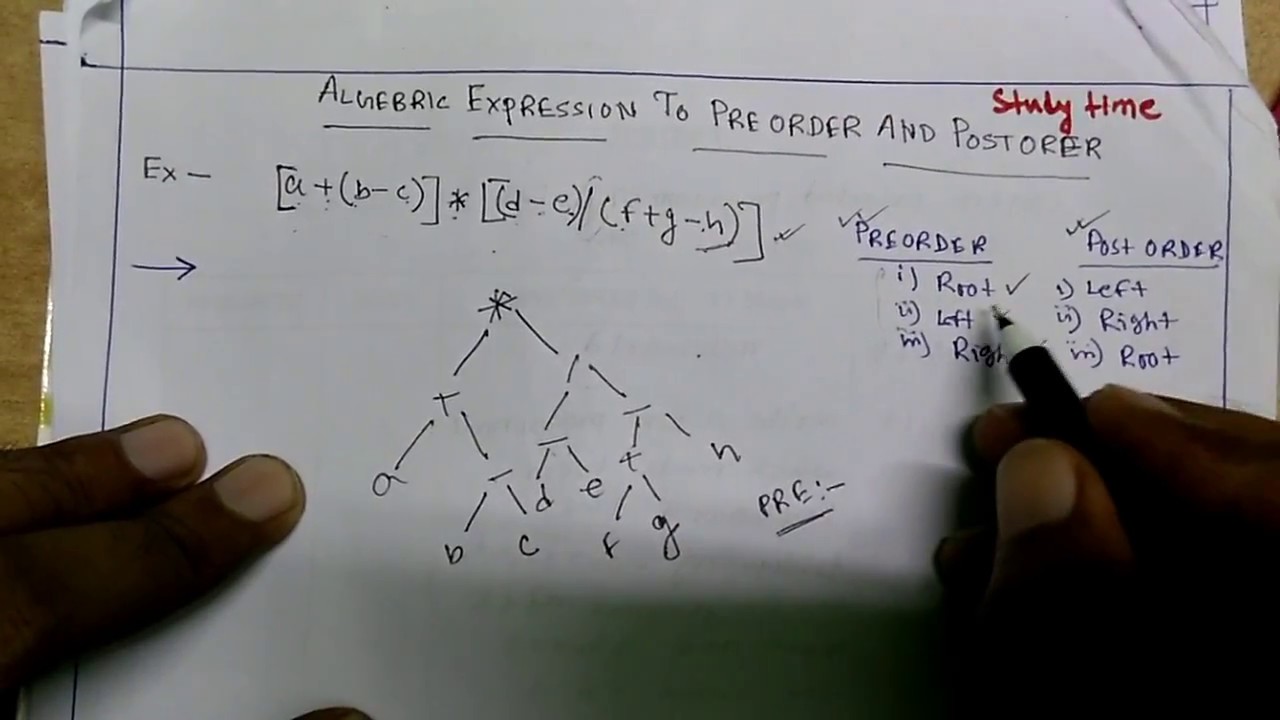 Study time
ALGEBRIC EXPRESSION TO PREORDER AND POSTORER
Ex - [a+(b-c)] * [(d-e)/(f+g-h)]
PREORDER
i) Root
ii) Left
iii) Right
POST ORDER
i) Left
ii) Right
iii) Root
*
+ /
- -
a - + h
d e
b c f g
PRE:-